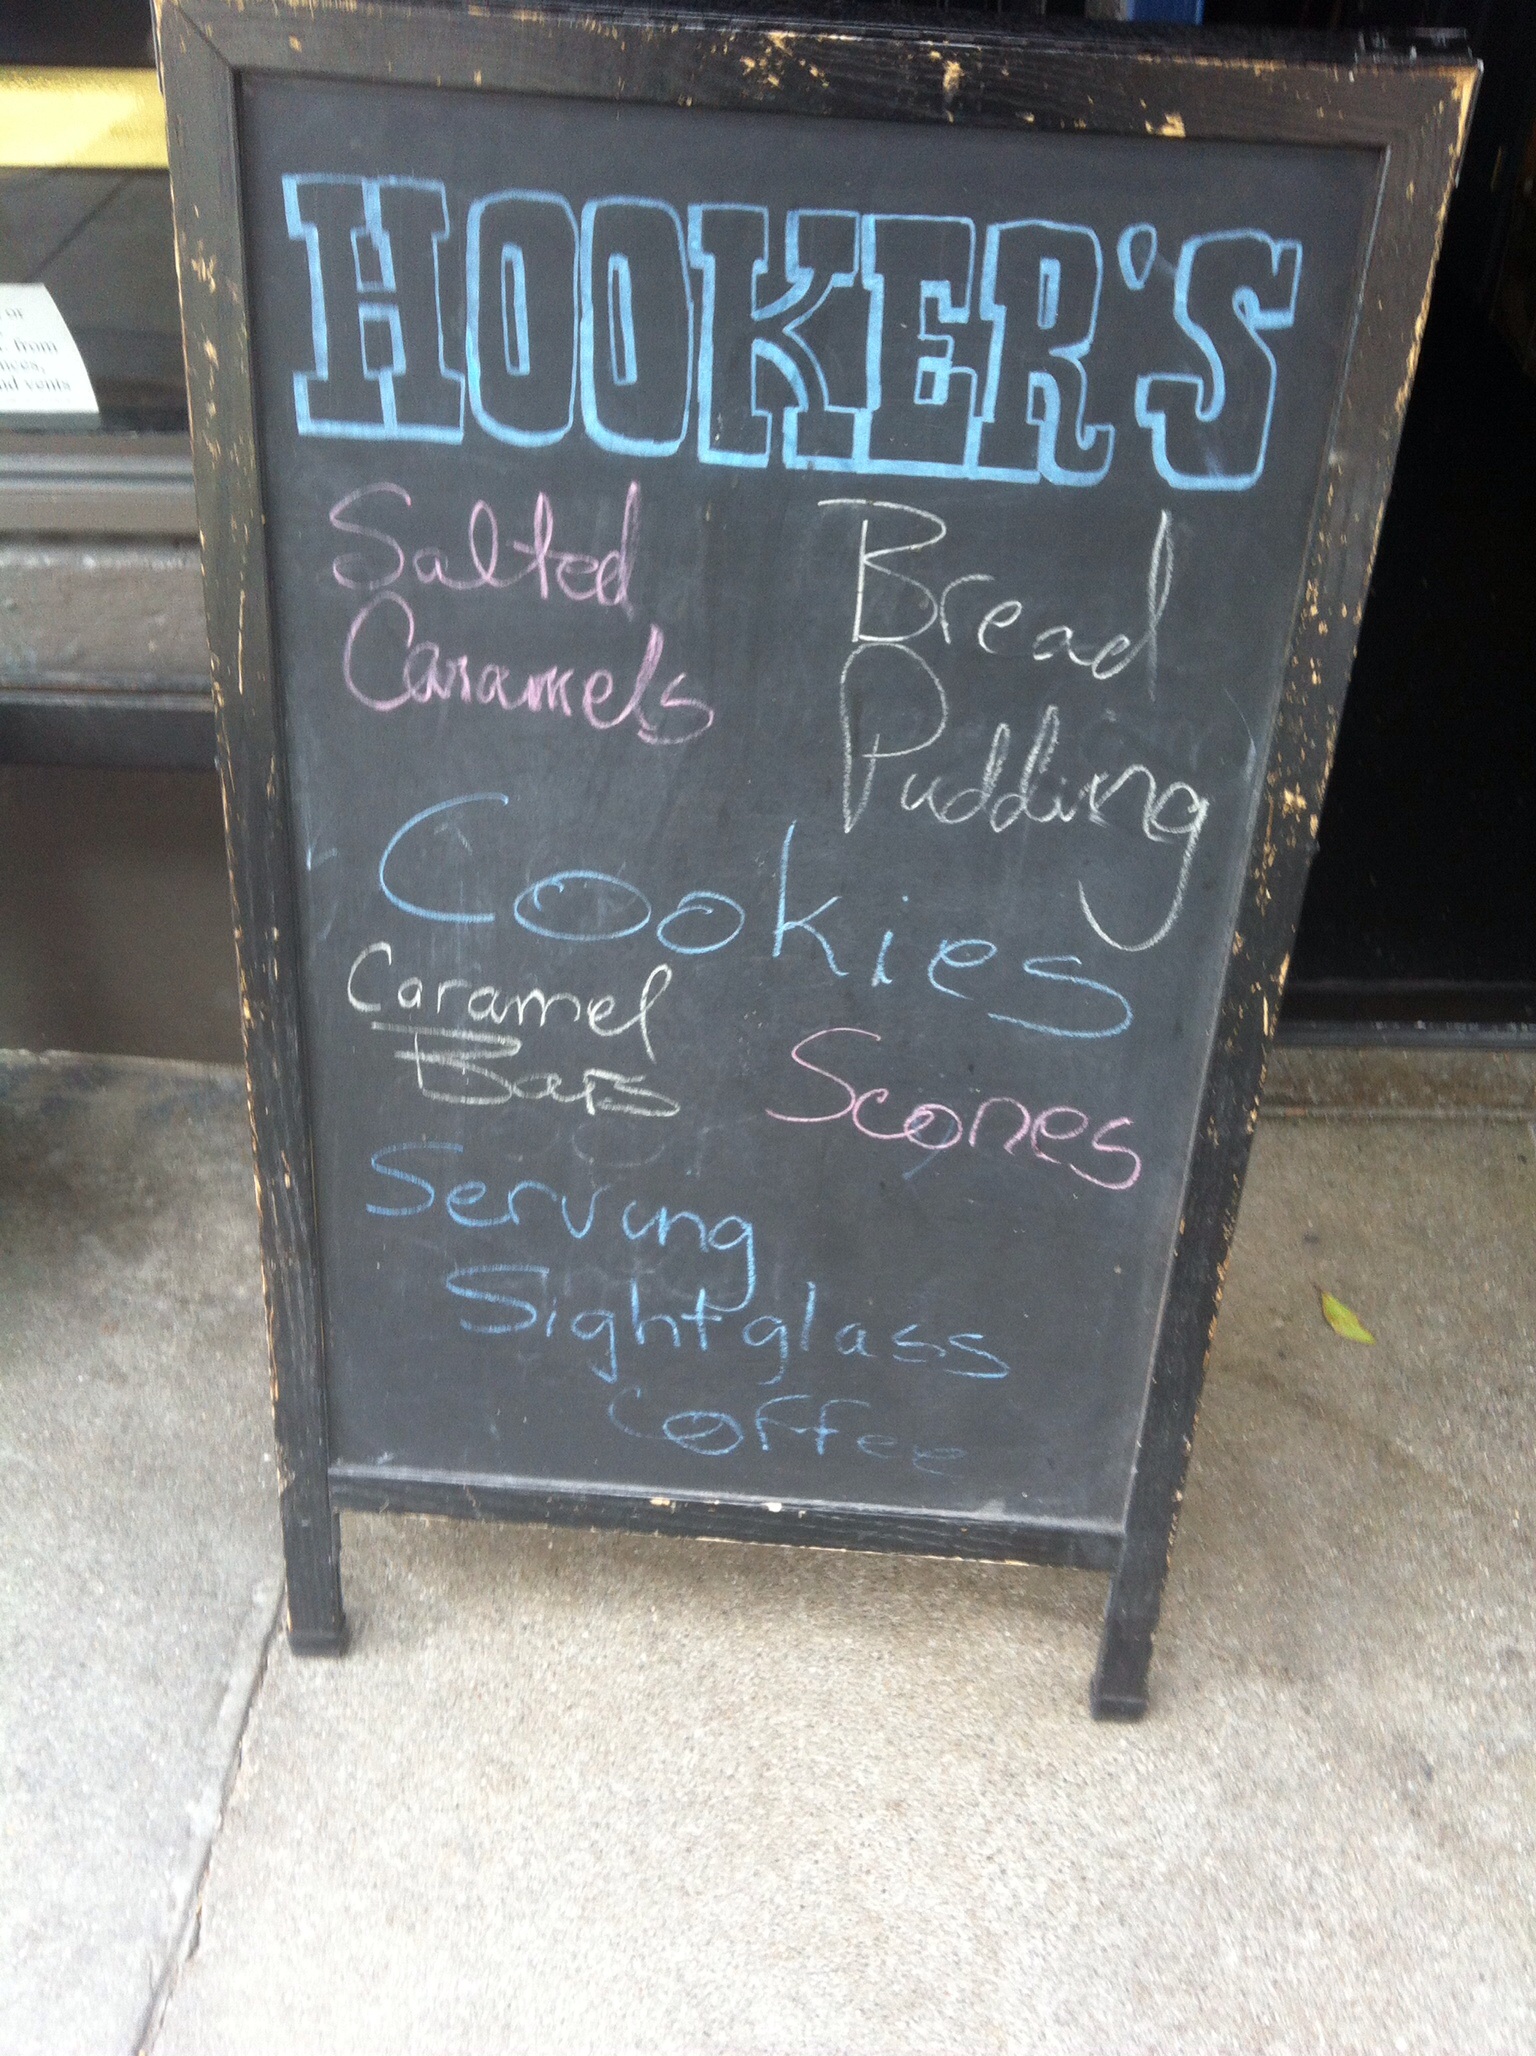 HOOKER'S
Salted
Caramels
Bread
Pudding
Cookies
Caramel
Bars
Scones
Serving
Sightglass
Coffee
or
from
and vents